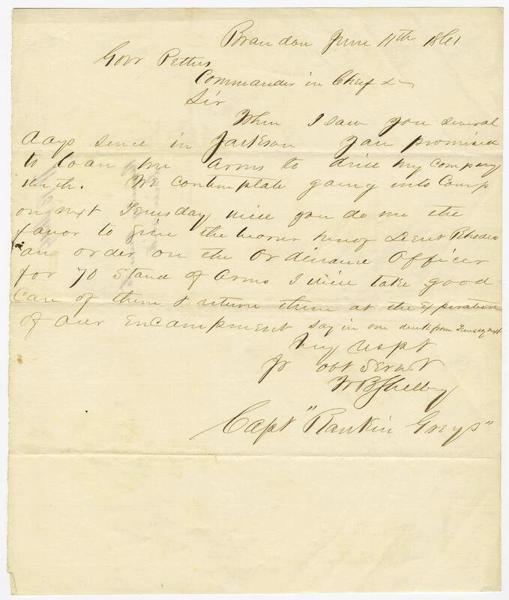 Brandon June 11th 1861
Govr Pettus
Commander in Chief &c
Sir
When I saw you several
days since in Jackson you promised
to loan me arms to drill my company
with. We contemplate going into Camp
on next Tuesday will you do me the
favor to give the bearer hereof Lieut Rhodes
an order on the Ordinance Officer
for 70 Stand of Arms I will take good
Care of them & return them at the Expiration
of our Encampment say in one week from Tuesday next
Very Respt
Yr obt Servt
W B Shelby
Capt "Rankin Greys"